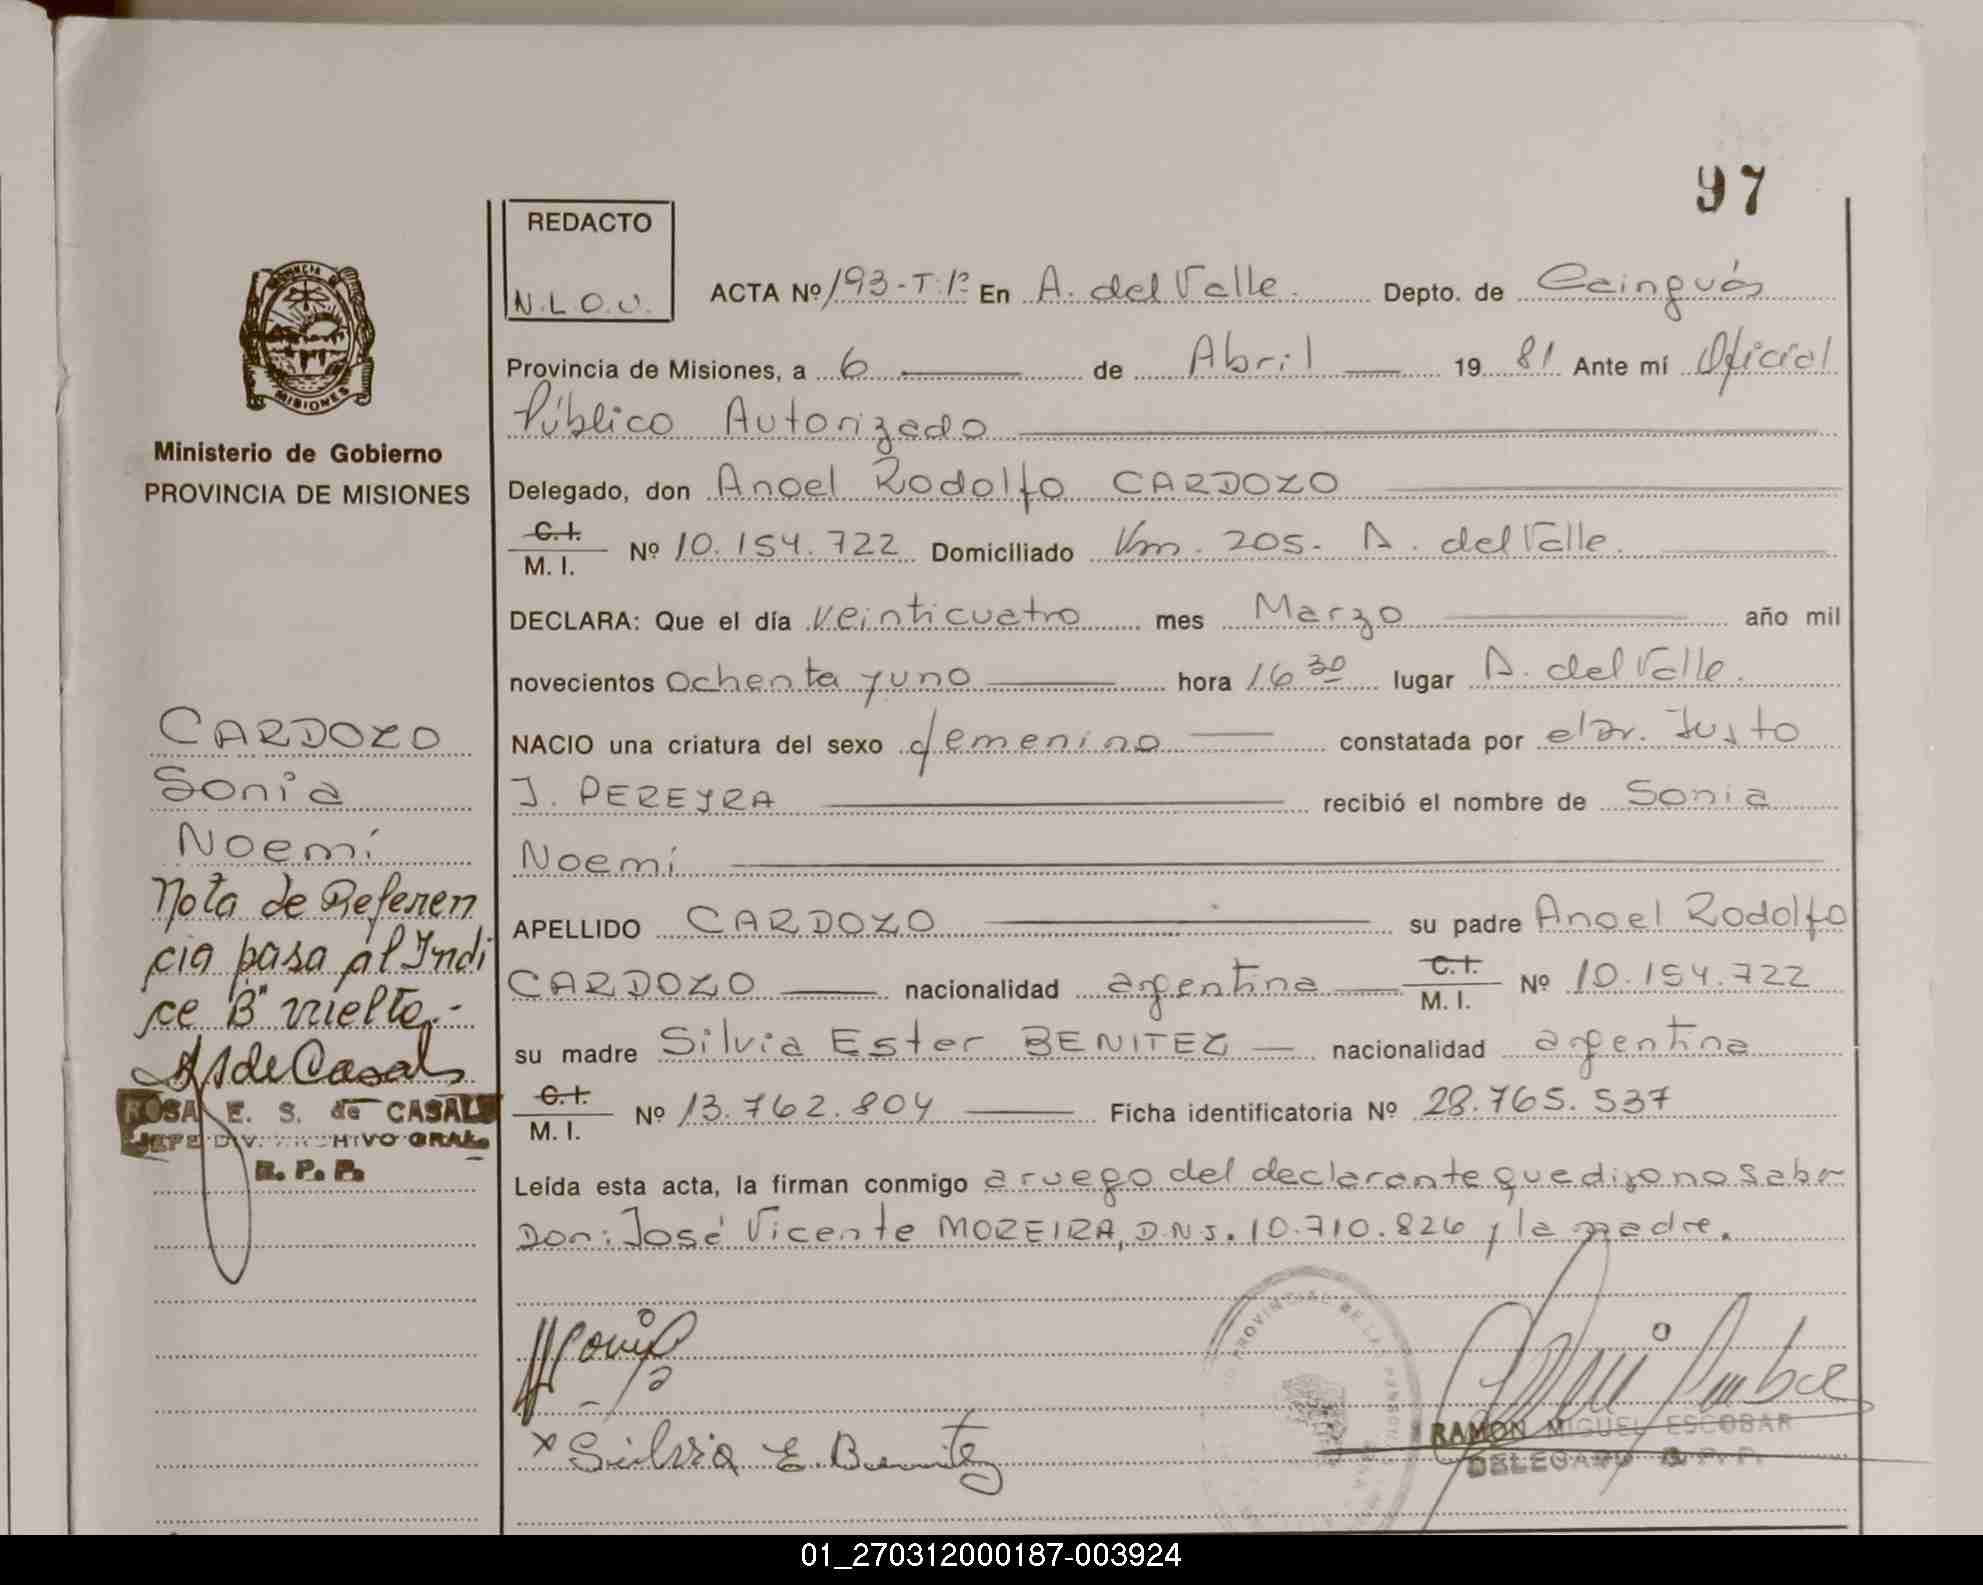 97
REDACTO
N.L.O.U.
ACTA Nº 193-T.1º En A. del Valle. Depto. de Cainguás
Provincia de Misiones, a 6 de Abril 1981 Ante mí Oficial
Público Autorizado
Delegado, don Angel Rodolfo CARDOZO
C.I.
M. I. Nº 10.154.722 Domiciliado Km. 205. A. del Valle.
DECLARA: Que el día veinticuatro mes Marzo año mil
novecientos ochenta y uno hora 16 30 lugar A. del Valle.
NACIO una criatura del sexo femenino constatada por el Dr. Justo
J. PEREYRA recibió el nombre de Sonia
Noemí
APELLIDO CARDOZO su padre Angel Rodolfo
CARDOZO nacionalidad argentina C.I. M. I. Nº 10.154.722
su madre Silvia Ester BENITEZ nacionalidad argentina
C.I.
M. I. Nº 13.762.804 Ficha identificatoria Nº 28.765.537
Leída esta acta, la firman conmigo a ruego del declarante que dijo no saber
Don: José Vicente MOREIRA, D.N.I. 10.710.826 y la madre.
x Silvia E. Benitez
RAMON MIGUEL ESCOBAR
DELEGADO R. P. P.
PROVINCIAL DE LAS PERSONAS
PROVINCIA DE
MISIONES
Ministerio de Gobierno
PROVINCIA DE MISIONES
CARDOZO
Sonia
Noemí
Nota de Referen
cia pasa al Indi
ce "B" vuelto.-
ROSA E. S. de CASALS
JEFE DIV. ARCHIVO GRAL.
R. P. P.
01_270312000187-003924